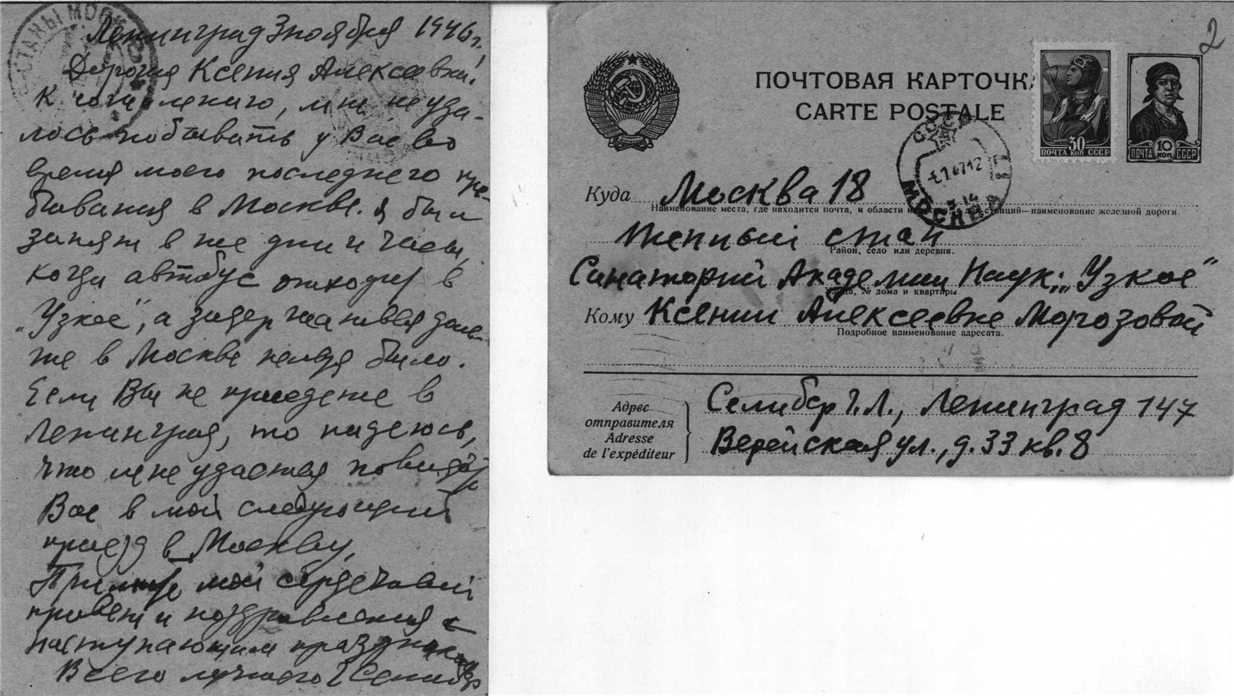 Ленинград 3 ноября 1946 г.
Дорогая Ксения Алексеевна!
К сожалению, мне не уда-
лось побывать у Вас во
время моего последнего пре-
бывания в Москве. Я был
занят в те дни и часы,
когда автобус отходил в
„Узкое", а задерживаться доль-
же в Москве нельзя было.
Если Вы не приедете в
Ленинград, то надеюсь,
что мне удастся повидать
Вас в мой следующий
приезд в Москву.
Примите мой сердечный
привет и поздравления с
наступающим праздником
Всего лучшего Г Селибер
2
ПОЧТОВАЯ КАРТОЧКА
CARTE POSTALE
30
ПОЧТА КОП СССР
ПОЧТА 10 КОП СССР
МОСКВА
Куда Москва 18
Наименование места, где находится почта, и области наименование железной дороги.
Теплый стан
Район, село или деревня.
Санаторий Академии Наук „Узкое"
№ дома и квартиры
Кому Ксении Алексеевне Морозовой
Подробное наименование адресата.
Адрес
отправителя
Adresse
de l'expéditeur
Селибер Г.Л., Ленинград 147
Верейская ул., д. 33 кв. 8